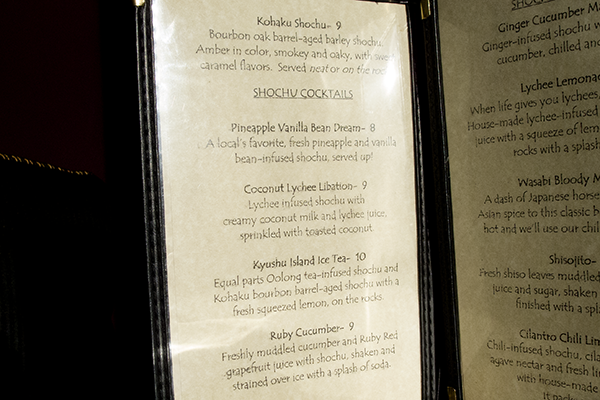 Kohaku Shochu- 9
Bourbon oak barrel-aged barley shochu.
Amber in color, smokey and oaky, with sweet
caramel flavors. Served neat or on the rocks
SHOCHU COCKTAILS
Pineapple Vanilla Bean Dream- 8
A local's favorite, fresh pineapple and vanilla
bean-infused shochu, served up!
Coconut Lychee Libation- 9
Lychee infused shochu with
creamy coconut milk and lychee juice,
sprinkled with toasted coconut.
Kyushu Island Ice Tea- 10
Equal parts Oolong tea-infused shochu and
Kohaku bourbon barrel-aged shochu with a
fresh squeezed lemon, on the rocks.
Ruby Cucumber- 9
Freshly muddled cucumber and Ruby Red
grapefruit juice with shochu, shaken and
strained over ice with a splash of soda.
Ginger Cucumber
Ginger-infused shochu
cucumber, chilled
Lychee
When life gives you lychees,
House-made lychee-infused
juice with a squeeze of
rocks with a splash
Wasabi Bloody
A dash of Japanese
Asian spice to this classic
hot and we'll use our
Shisojito-
Fresh shiso leaves muddled
juice and sugar, shaken
finished with a
Cilantro Chili
Chili-infused shochu,
agave nectar and fresh
with house-made
It